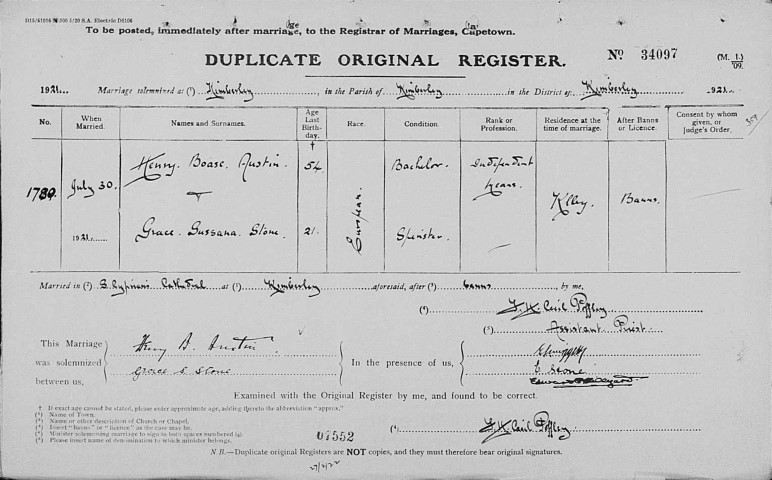 To be posted, immediately after marriage, to the Registrar of Marriages, Capetown.
DUPLICATE ORIGINAL REGISTER.
Nº 34097
(M. 1.)
/09.
1921... Marriage solemnized at (¹) Kimberley, in the Parish of Kimberley in the District of Kimberley 1921...
No.
When Married.
Names and Surnames.
Age Last Birthday.
Race.
Condition.
Rank or Profession.
Residence at the time of marriage.
After Banns or Licence.
Consent by whom given, or Judge's Order.
†
1789. July 30. 1921
Henry Boase Austin. 54 Bachelor. Independent means.
&
European. K'ley. Banns.
Grace Sussana Stone. 21. Spinster.
Married in (²) S. Cyprian's Cathedral at (¹) Kimberley aforesaid, after (³) banns, by me,
(⁴) Cecil
(⁵) Assistant Priest.
This Marriage was solemnized between us,
Henry B. Austin
Grace S Stone
In the presence of us,
E Stone
Examined with the Original Register by me, and found to be correct.
(⁴) Cecil
† If exact age cannot be stated, please enter approximate age, adding thereto the abbreviation "approx."
(¹) Name of Town.
(²) Name or other description of Church or Chapel.
(³) Insert "banns" or "licence" as the case may be.
(⁴) Minister solemnizing marriage to sign in both spaces numbered (4).
(⁵) Please insert name of denomination to which minister belongs.
07552
N.B.—Duplicate original Registers are NOT copies, and they must therefore bear original signatures.